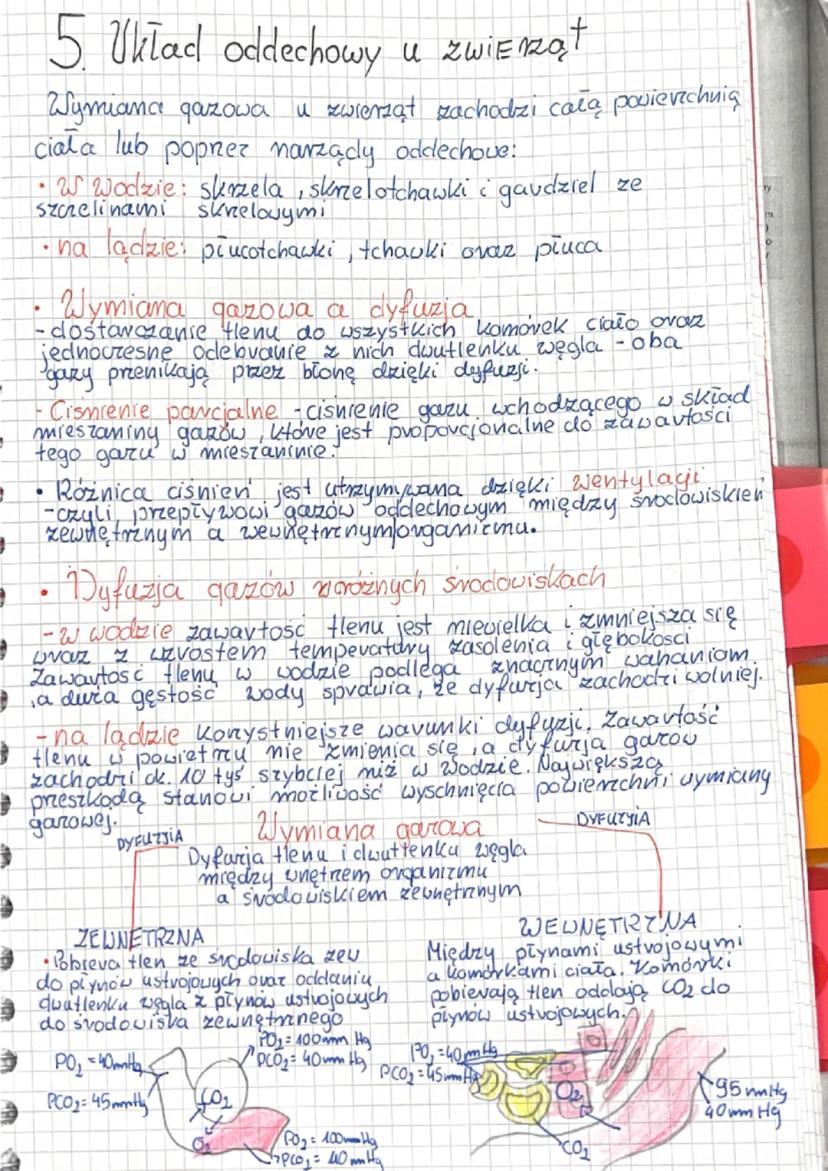 5. Układ oddechowy u zwierząt
Wymiana gazowa u zwierząt zachodzi całą powierzchnią
ciała lub poprzez narządy oddechowe:
• W wodzie: skrzela, skrzelotchawki i gardziel ze
szczelinami skrzelowymi
• na lądzie: płucotchawki, tchawki oraz płuca
• Wymiana gazowa a dyfuzja
- dostarczanie tlenu do wszystkich komórek ciało oraz
jednoczesne odebranie z nich dwutlenku węgla - oba
gazy przenikają przez błonę dzięki dyfuzji.
- Ciśnienie parcjalne - ciśnienie gazu wchodzącego w skład
mieszaniny gazów, które jest proporcjonalne do zawartości
tego gazu w mieszaninie.
• Różnica ciśnień jest utrzymywana dzięki wentylacji
- czyli przepływowi gazów oddechowym między środowiskien
zewnętrznym a wewnętrznym organizmu.
• Dyfuzja gazów w różnych środowiskach
- w wodzie zawartość tlenu jest niewielka i zmniejsza się
wraz z wzrostem temperatury zasolenia i głębokości
Zawartość tlenu w wodzie podlega znacznym wahaniom
, a duża gęstość wody sprawia, że dyfuzja zachodzi wolniej.
- na lądzie korzystniejsze warunki dyfuzji. Zawartość
tlenu w powietrzu nie zmienia się, a dyfuzja gazów
zachodzi ok. 10 tyś szybciej niż w wodzie. Największą
przeszkodą stanowi możliwość wyschnięcia powierzchni wymiany
gazowej.
DYFUZJIA Wymiana gazowa DYFUZYJIA
Dyfuzja tlenu i dwutlenku węgla
między wnętrzem organizmu
a środowiskiem zewnętrznym
ZEWNĘTRZNA
• Pobiera tlen ze środowiska zew
do płynów ustrojowych oraz oddaniu
dwutlenku węgla z płynów ustrojowych
do środowiska zewnętrznego
WEWNĘTRZNA
Między płynami ustrojowymi
a komórkami ciała. Komórki
pobierają tlen oddają CO2 do
płynów ustrojowych.
PO2 = 40mmHg
PCO2 = 45mmHg
PO2 = 100mm Hg
PCO2 = 40mm Hg
CO2
O2
PO2 = 100mmHg
PCO2 = 40mmHg
PO2 = 40mmHg
PCO2 = 45mmHg
O2
CO2
95 mmHg
40 mm Hg